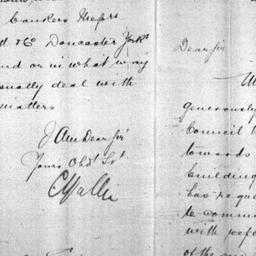 Bankers Messrs
& Co Doncaster Yorks
or in what way
usually deal with
matters
I Am Dear Sir
Yours Obdt St
Dear Sir
generously
Council
towards
building
has reque
to commun
with refe
of the